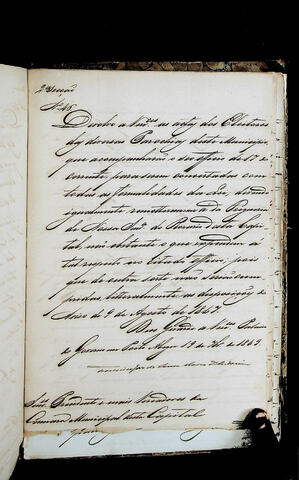 2ª Secção
Nº 48.
Devolvo a Vmces as actas dos Eleitores
das diversas Parochias deste Municipio
que acompanharão o seo officio de 15 do
corrente, para serem concertadas com
todas as formalidades da Lei, devendo
igualmente remetterem-me a da Freguesia
de Nossa Snrª do Rosario desta Capi-
tal, não obstante o que expendem á
tal respeito no citado officio; pois
que de outra sorte não serião cum-
pridas litteralmente as disposições do
Aviso de 9 de Agosto de 1847.
Deos Guarde a Vmces Palacio
do Governo em Porto Alegre 19 de de 1863.
Snres Presidente e mais Vereadores da
Camara Municipal desta Capital